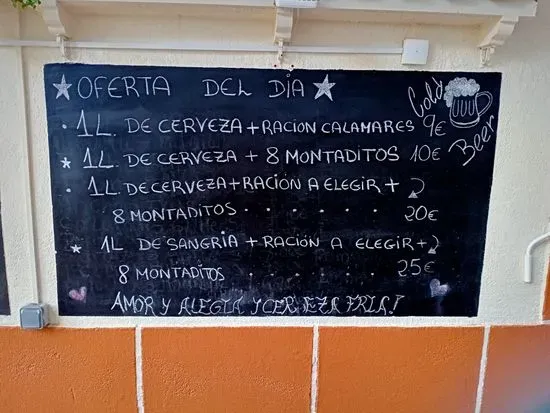 OFERTA DEL DIA
1L. DE CERVEZA + RACION CALAMARES 9€
1L. DE CERVEZA + 8 MONTADITOS 10€
1L DE CERVEZA + RACIÓN A ELEGIR +
8 MONTADITOS . . . . . . 20€
1L DE SANGRIA + RACIÓN A ELEGIR +
8 MONTADITOS . . . . . 25€
AMOR Y ALEGIA Y CERVEZA FRIA!
Cold
Beer